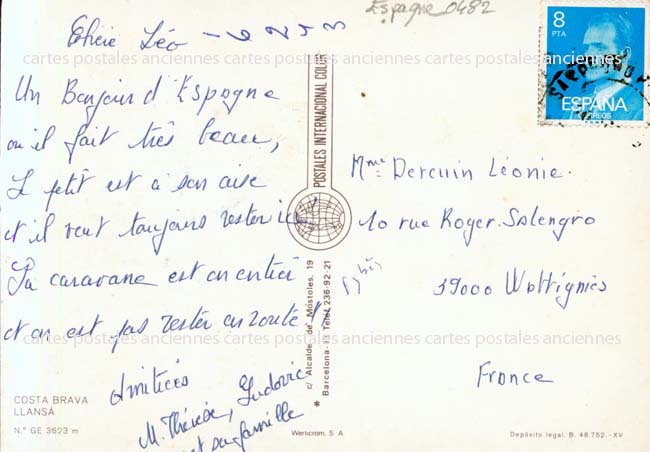 Espagne 0482
Chère Léo
Un Bonjour d'Espagne
où il fait très beau,
Le petit est à son aise
et il veut toujours rester ici!
La caravane est en entier
et on est pas rester en route!
Amitiés
M. Thérèse, Ludovic
et sa famille
COSTA BRAVA
LLANSÁ
N.º GE 3623 m
POSTALES INTERNACIONAL COLOR
c/ Alcalde de Móstoles, 19
Barcelona-13 Telef. 236-92-21
Werscrom, S. A.
8
PTA
ESPAÑA
CORREOS
Mme Dercuin Léonie.
10 rue Roger. Salengro
39000 Wattignies
France
Depósito legal. B. 48.752.-XV
cartes postales anciennes cartes postales anciennes cartes postales anciennes
cartes postales anciennes cartes postales anciennes cartes postales anciennes